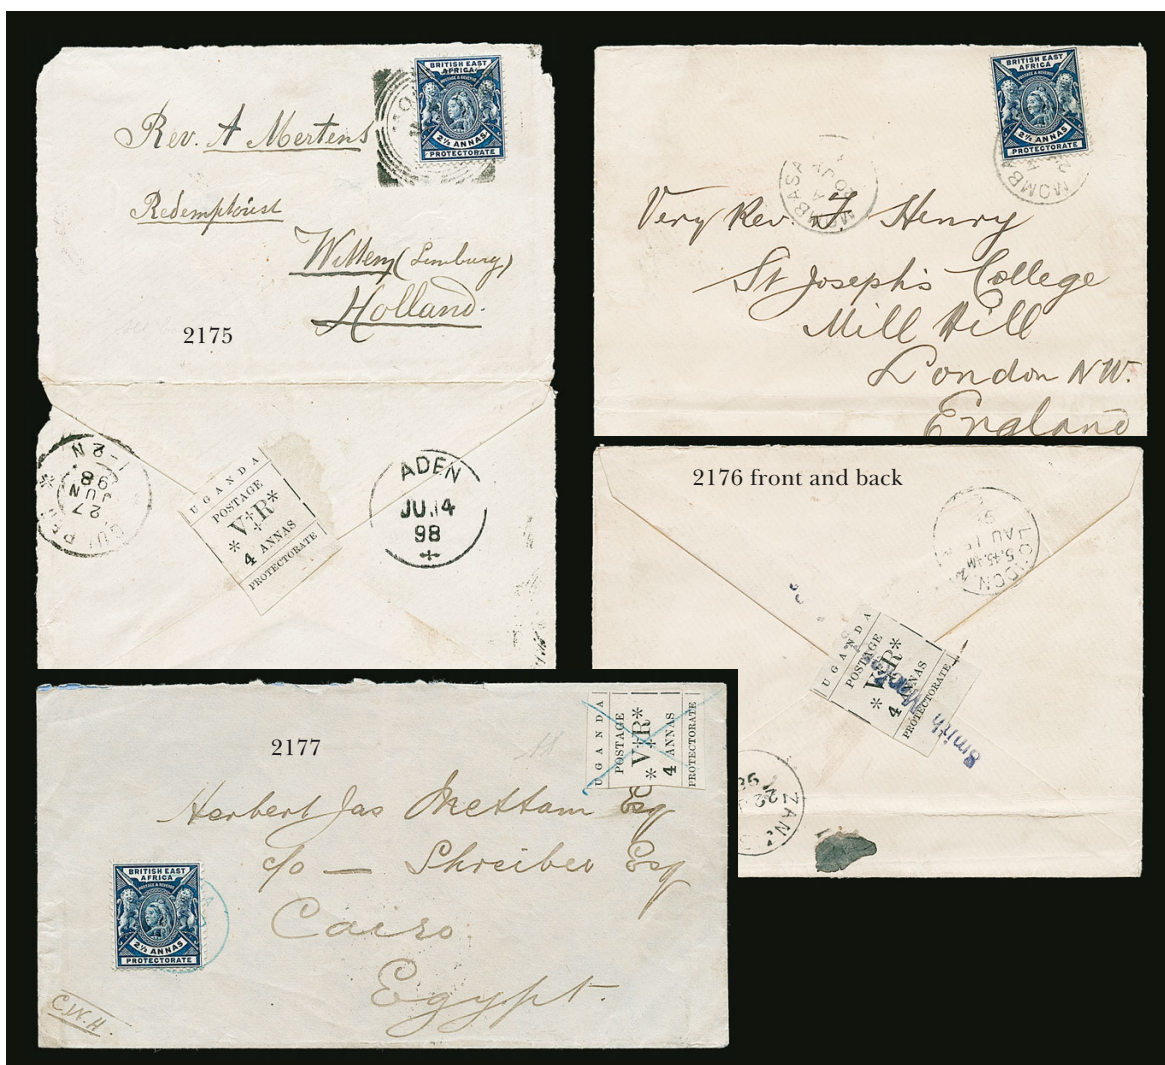 BRITISH EAST
AFRICA
POSTAGE & REVENUE
2½ ANNAS
PROTECTORATE
Rev. A Mertens
Redemptorist
Wittem (Limburg)
Holland.
2175
UGANDA
POSTAGE
V+R
4 ANNAS
PROTECTORATE
ADEN
JU.14
98
27
JUN
98
1-2N
BRITISH EAST
AFRICA
POSTAGE & REVENUE
2½ ANNAS
PROTECTORATE
MOMBASA
MOMBA
Very Rev. Henry
St Joseph's College
Mill Hill
London NW.
England
2176 front and back
LONDON
5.45.AM
AU
UGANDA
POSTAGE
V+R
4 ANNAS
PROTECTORATE
Smith Mac
ZAN
2177
UGANDA
POSTAGE
V+R
4 ANNAS
PROTECTORATE
Herbert Jas Mettam Esq
c/o — Shreiber Esq
Cairo
Egypt.
BRITISH EAST
AFRICA
POSTAGE & REVENUE
2½ ANNAS
PROTECTORATE
C.W.H.